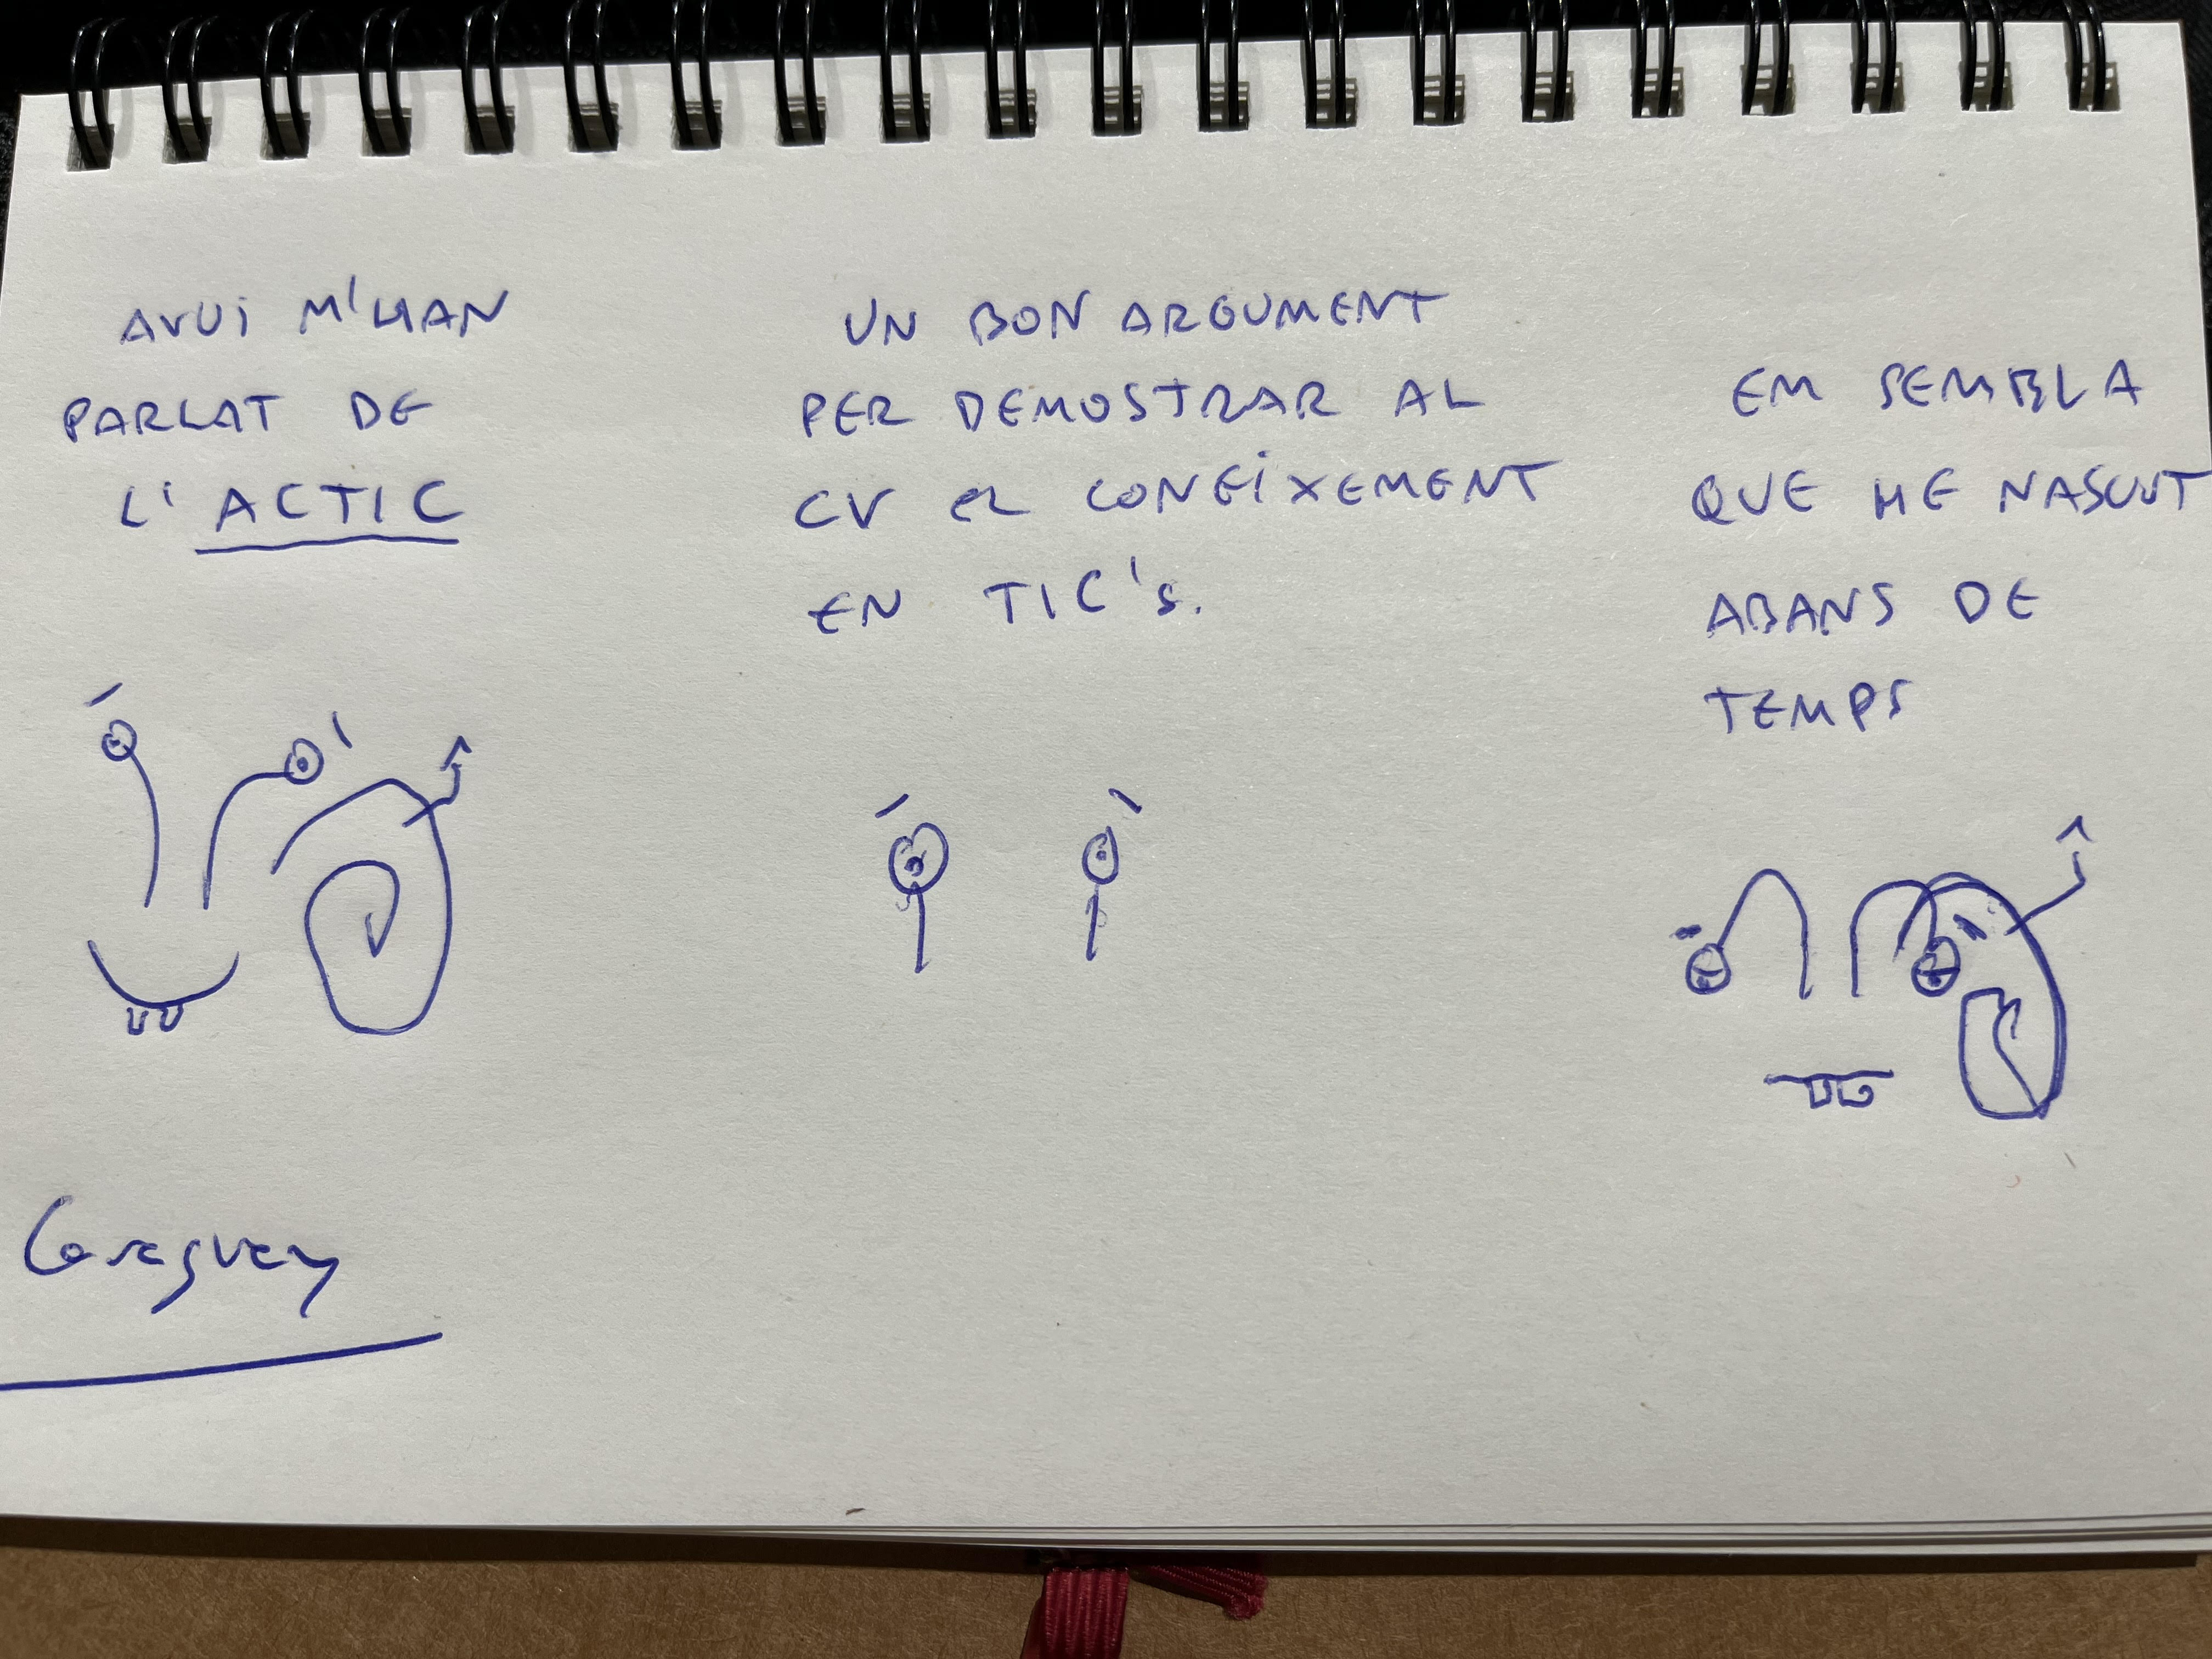 AVUI M'HAN
PARLAT DE
L'ACTIC
UN BON ARGUMENT
PER DEMOSTRAR AL
CV EL CONEIXEMENT
EN TIC'S.
EM SEMBLA
QUE HE NASCUT
ABANS DE
TEMPS